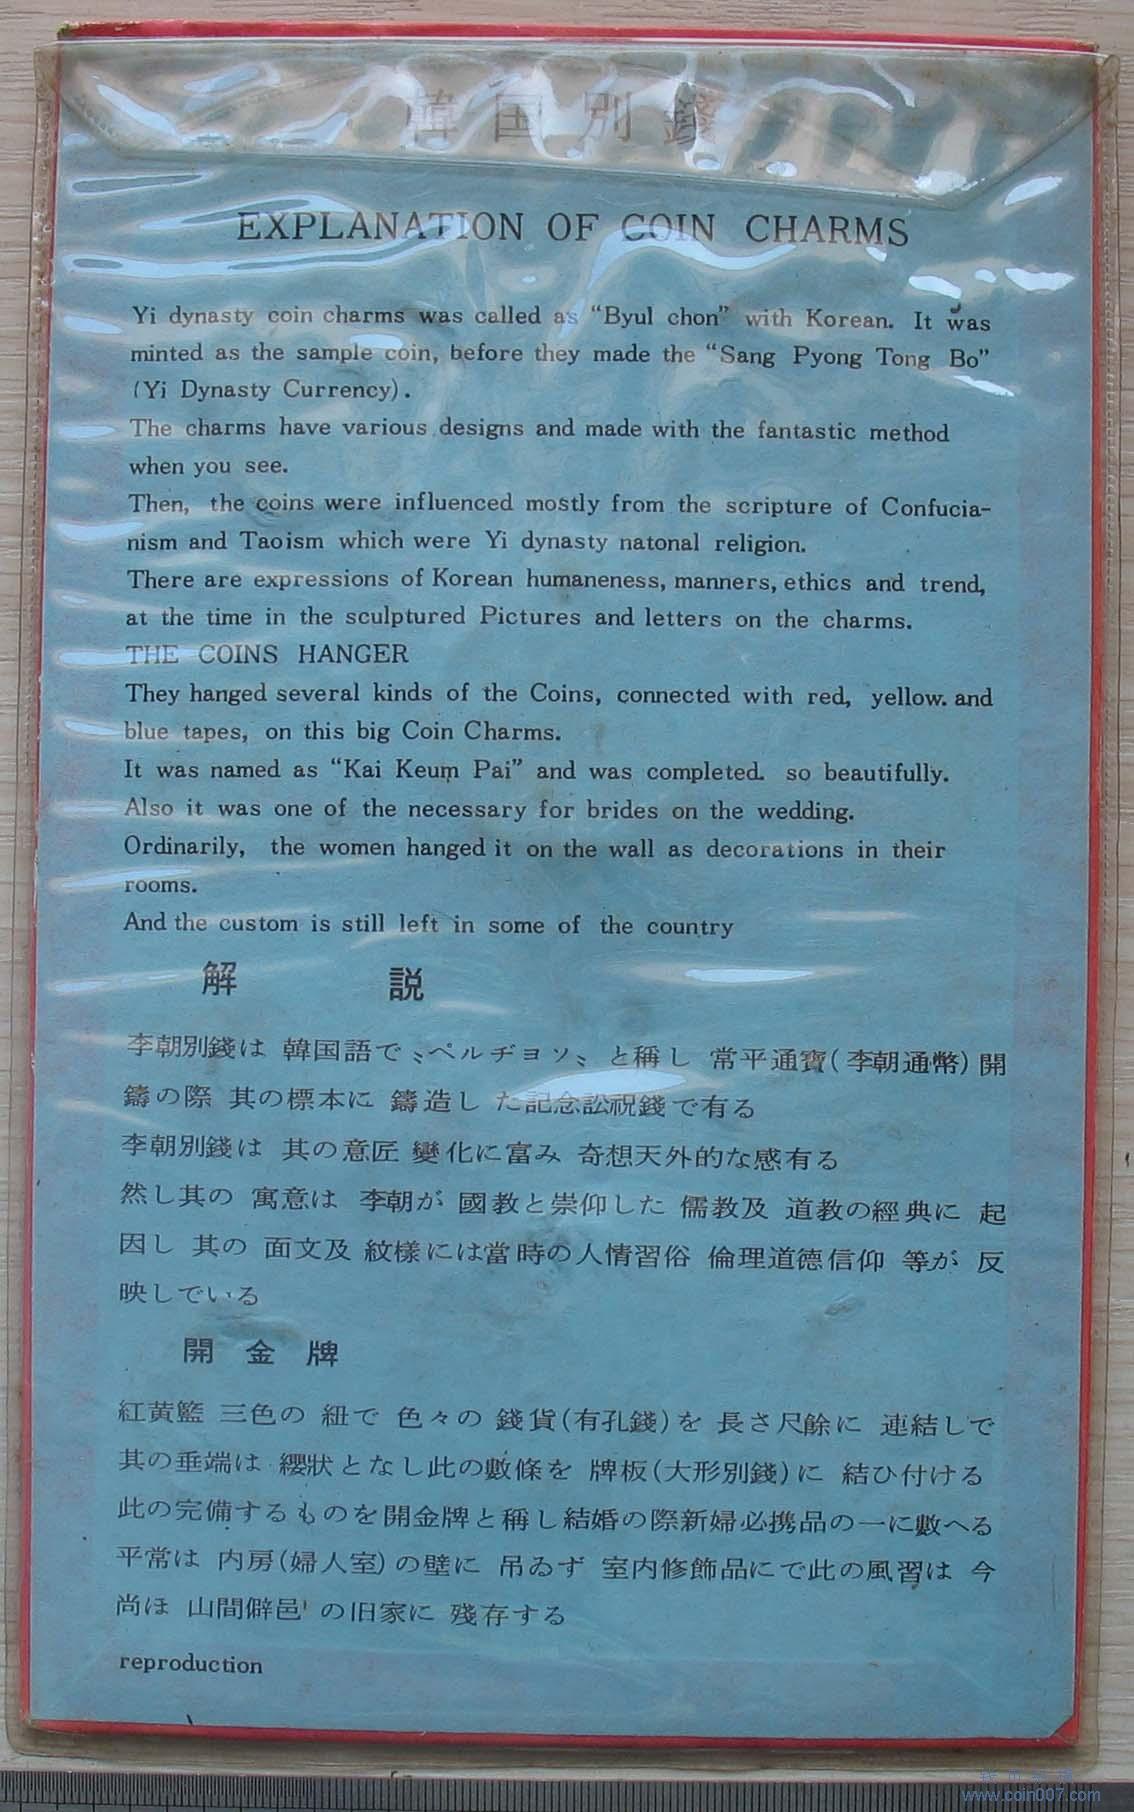 韓国別錢
EXPLANATION OF COIN CHARMS
Yi dynasty coin charms was called as “Byul chon” with Korean. It was
minted as the sample coin, before they made the “Sang Pyong Tong Bo”
(Yi Dynasty Currency).
The charms have various designs and made with the fantastic method
when you see.
Then, the coins were influenced mostly from the scripture of Confucia-
nism and Taoism which were Yi dynasty natonal religion.
There are expressions of Korean humaneness, manners, ethics and trend,
at the time in the sculptured Pictures and letters on the charms.
THE COINS HANGER
They hanged several kinds of the Coins, connected with red, yellow. and
blue tapes, on this big Coin Charms.
It was named as “Kai Keum Pai” and was completed. so beautifully.
Also it was one of the necessary for brides on the wedding.
Ordinarily, the women hanged it on the wall as decorations in their
rooms.
And the custom is still left in some of the country
解 説
李朝別錢は 韓国語で〝ペルヂョソ〟と稱し 常平通寶(李朝通幣)開
鑄の際 其の標本に 鑄造し た記念訟祝錢で有る
李朝別錢は 其の意匠 變化に富み 奇想天外的な感有る
然し其の 寓意は 李朝が 國教と崇仰した 儒教及 道教の經典に 起
因し 其の 面文及 紋樣には當時の人情習俗 倫理道德信仰 等が 反
映している
開金牌
紅黄籃 三色の 紐で 色々の 錢貨(有孔錢)を 長さ尺餘に 連結しで
其の垂端は 纓狀となし此の數條を 牌板(大形別錢)に 結ひ付ける
此の完備するものを開金牌と稱し結婚の際新婦必携品の一に數へる
平常は 内房(婦人室)の壁に 吊ゐず 室内修飾品にで此の風習は 今
尚ほ 山間僻邑 の旧家に 殘存する
reproduction
www.coin007.com